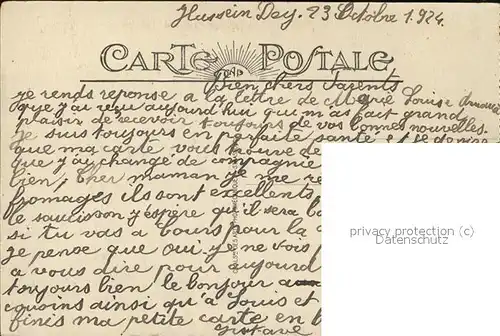 Hussein Dey. 23 Octobre 1.924.
CARTE POSTALE
Bien chers Parents
je rends reponse a la lettre de Louise
que j'ai reçu aujourd'hui qui m'as fait grand
plaisir de recevoir toujours de vos bonnes nouvelles.
je suis toujours en parfaite santé et je desire
que ma carte vous trouve de
que j'ai changé de compagnie
bien, Cher maman je me re
fromages ils sont excellents
le saucisson j'éspère qu'il sera
si tu vas a Cours pour la
je pense que oui je ne vois p
a vous dire pour aujourd
toujours bien le bonjour
cousins ainsi qu'à Louis et
finis ma petite carte en b
Gustave
privacy protection (c)
Datenschutz